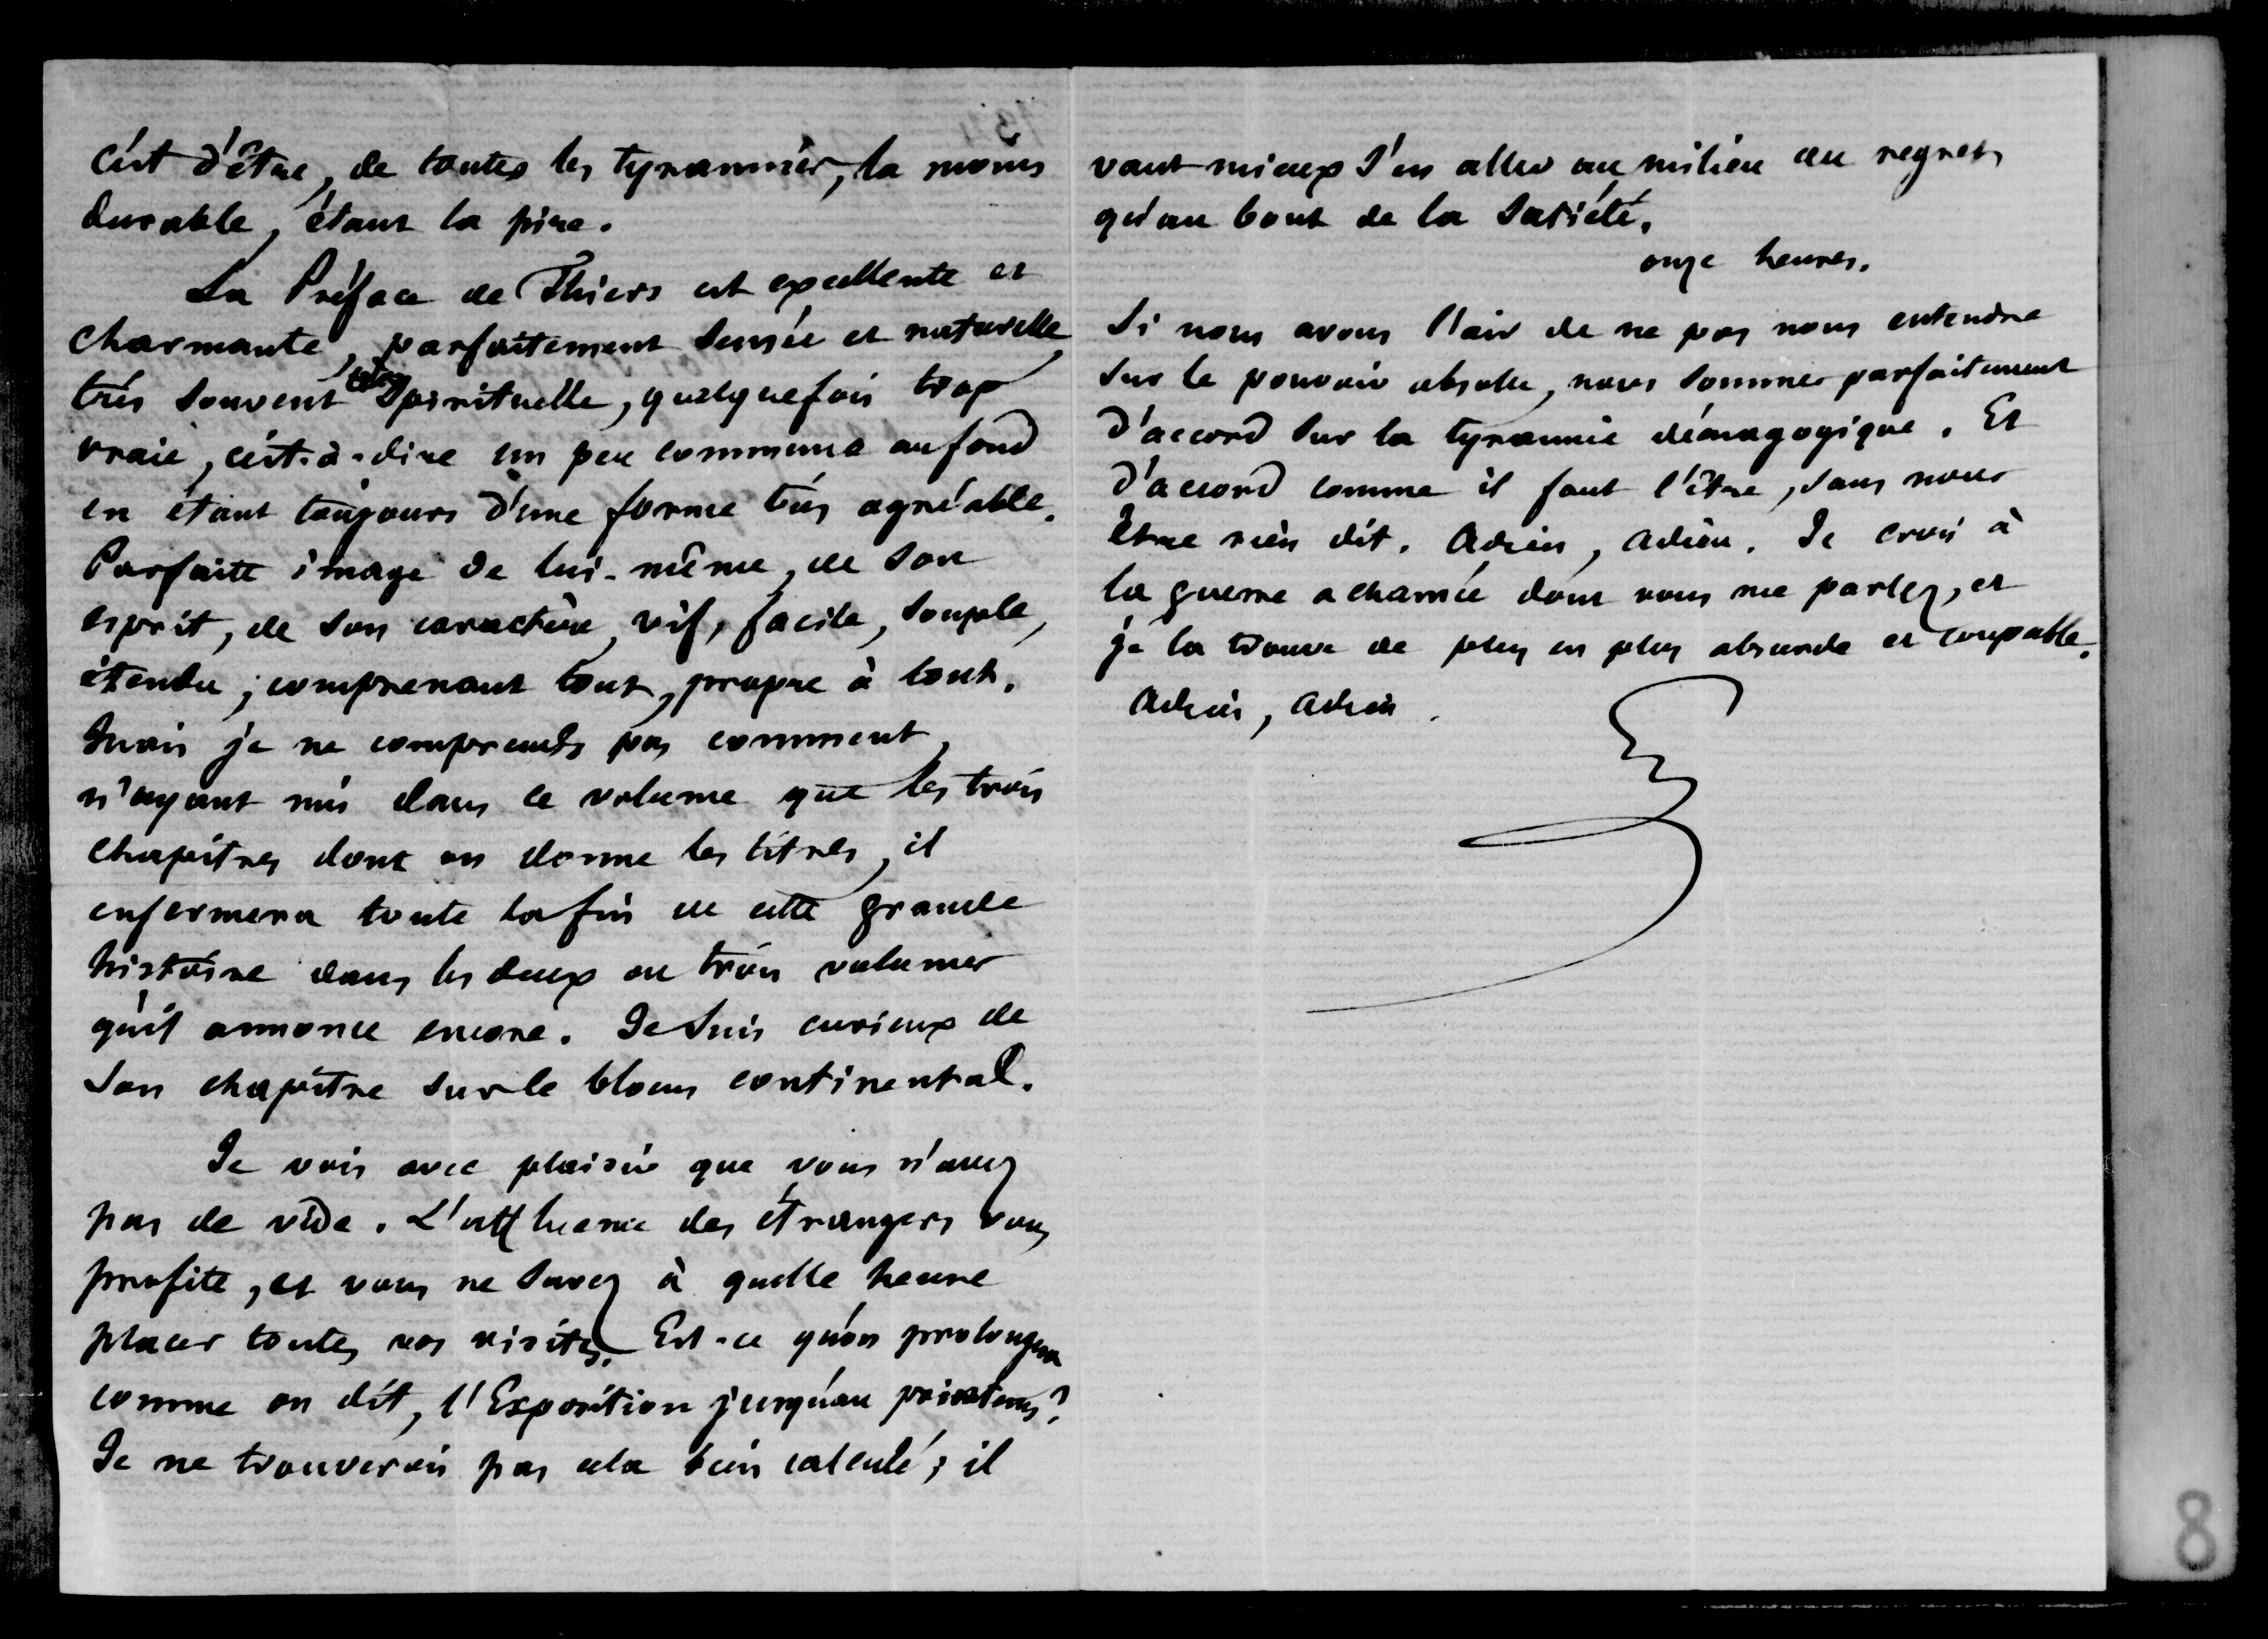 c'est d'être, de toutes les tyrannies, la moins
durable, étant la pire.
La Préface de Thiers est excellente et
charmante, parfaitement sensée et naturelle,
très souvent spirituelle, quelquefois trop
vraie, c'est-à-dire un peu commune au fond
en étant toujours d'une forme très agréable.
Parfaite image de lui-même, de son
esprit, de son caractère, vif, facile, souple,
étendu, comprenant tout, propre à tout.
Mais je ne comprends pas comment,
n'ayant mis dans ce volume que les trois
chapitres dont on donne les titres, il
enfermera toute la fin de cette grande
histoire dans les deux ou trois volumes
qu'il annonce encore. Je suis curieux de
son chapitre sur le blocus continental.
Je vois avec plaisir que vous n'avez
pas de vide. L'affluence des étrangers vous
profite, et vous ne savez à quelle heure
placer toutes vos visites. Est-ce qu'on prolongera
comme on dit, l'Exposition jusqu'au printems?
Je ne trouverois pas cela bien calculé; il
vaut mieux s'en aller au milieu du regret,
qu'au bout de la satiété.
onze heures.
Si nous avons l'air de ne pas nous entendre
sur le pouvoir absolu, nous sommes parfaitement
d'accord sur la tyrannie démagogique. Et
d'accord comme il faut l'être, sans nous
être rien dit. Adieu, adieu. Je crois à
la guerre acharnée dont vous me parlez, et
je la trouve de plus en plus absurde et coupable.
Adieu, adieu.
8